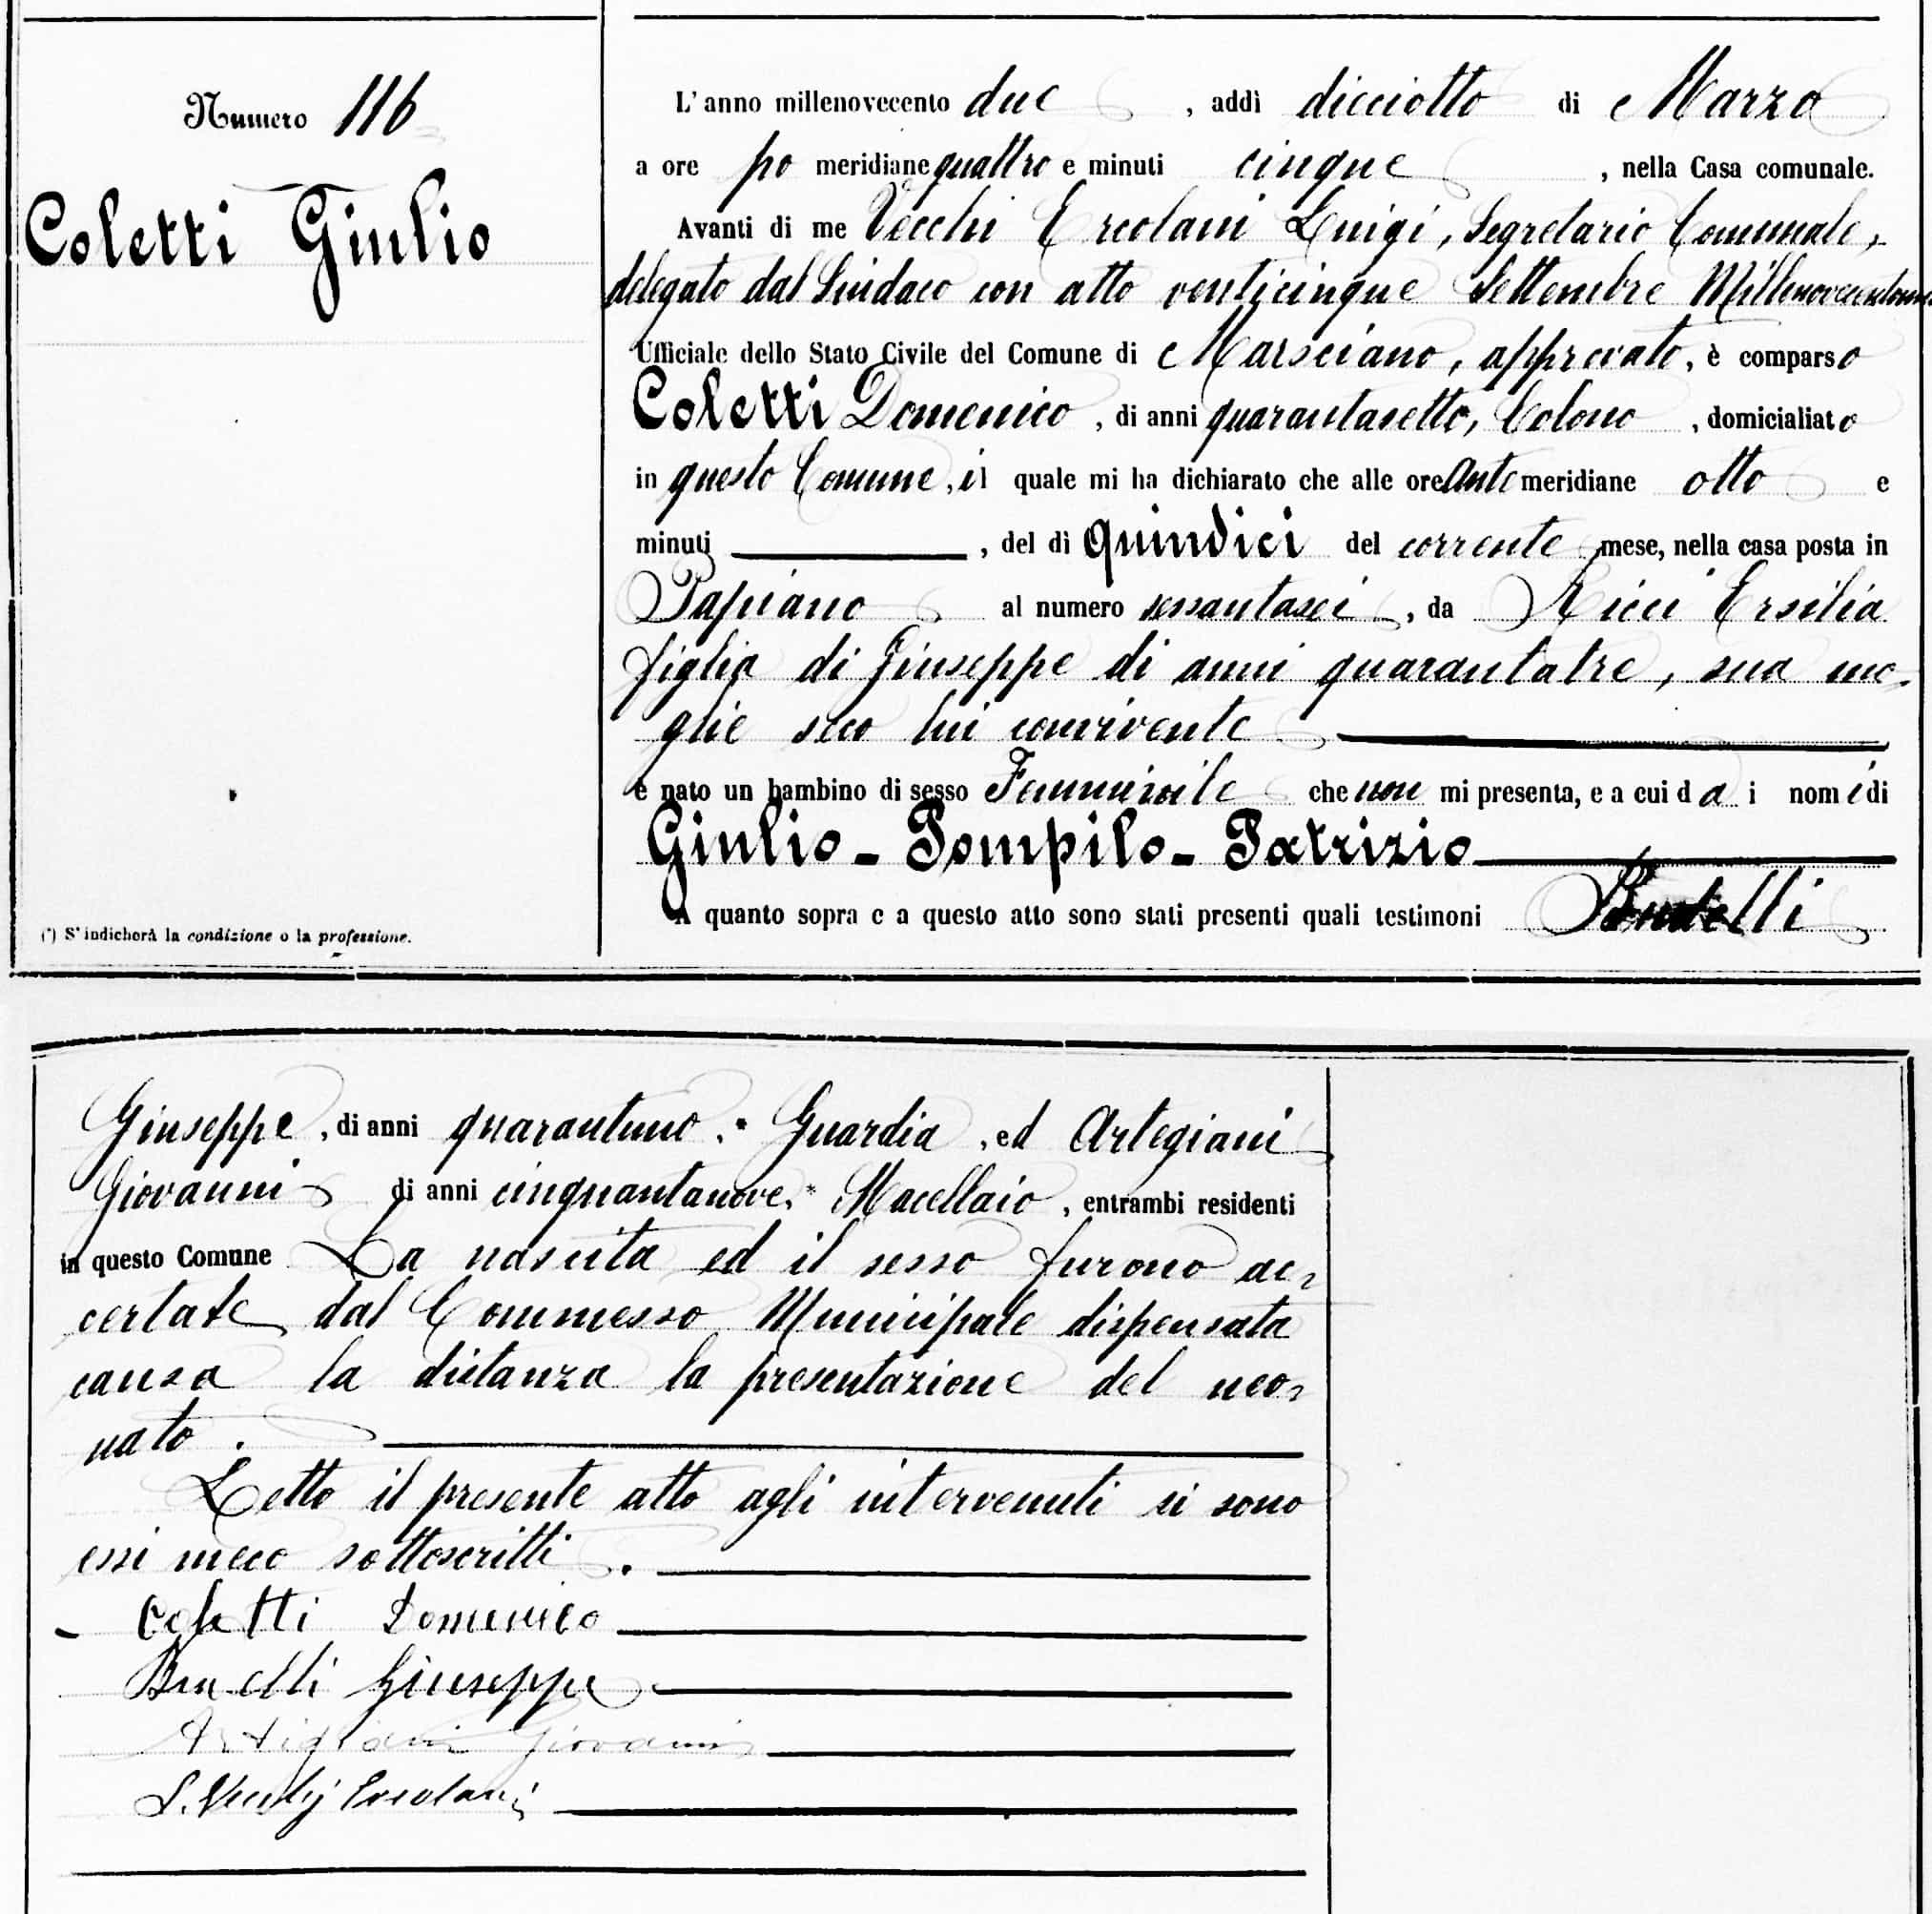 Numero 116
Coletti Giulio
(*) S'indicherà la condizione o la professione.
L'anno millenovecento due , addì dicciotto di Marzo
a ore po meridiane quattro e minuti cinque , nella Casa comunale.
Avanti di me Vecchi Ercolani Luigi, Segretario Comunale,
delegato dal Sindaco con atto venticinque Settembre
Ufficiale dello Stato Civile del Comune di Marsciano, approvato, è comparso
Coletti Domenico , di anni quarantasette, Colono , domicialiato
in questo Comune, il quale mi ha dichiarato che alle ore Ante meridiane otto e
minuti , del dì quindici del corrente mese, nella casa posta in
Papiano al numero sessantasei , da Ricci Ersilia
figlia di Giuseppe di anni quarantatre, sua mo-
glie seco lui convivente
è nato un bambino di sesso Femminile che non mi presenta, e a cui d a i nom i di
Giulio - Pompilo - Patrizio
A quanto sopra e a questo atto sono stati presenti quali testimoni
Giuseppe , di anni quarantuno, * Guardia , ed Artegiani
Giovanni di anni cinquantanove, * Macellaio , entrambi residenti
in questo Comune La nascita ed il sesso furono ac-
certate dal Commesso Municipale dispensata
causa la distanza la presentazione del neo-
nato.
Letto il presente atto agli intervenuti si sono
essi meco sottoscritti.
- Coletti Domenico
Giuseppe
Artigiani Giovanni
L. Vecchj Ercolani